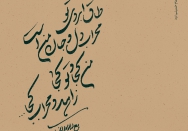 طاق ابروی تو
محراب دل و جان من است
من کجا و تو کجا
زاهد و محراب کجا